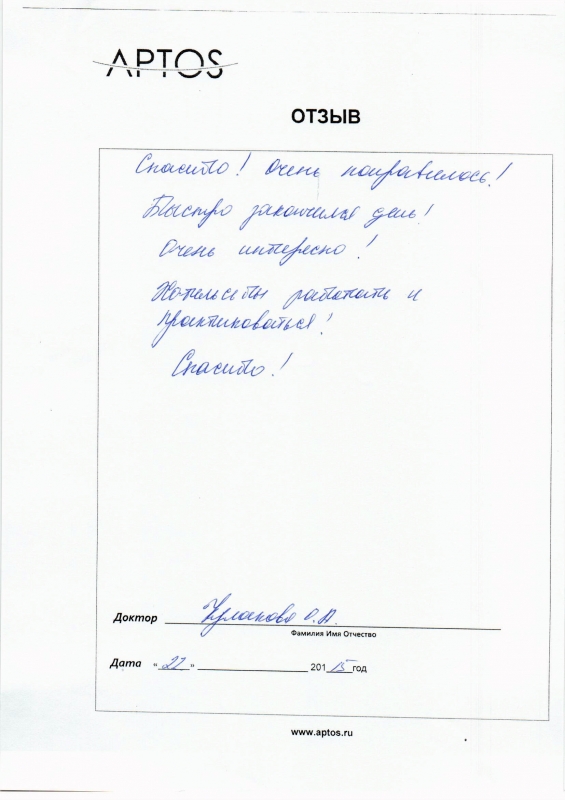 APTOS
ОТЗЫВ
Спасибо! Очень понравилось!
Быстро закончился день!
Очень интересно!
Хотелось бы работать и
практиковаться!
Спасибо!
Доктор О.А.
Фамилия Имя Отчество
Дата "22" 2015 год
www.aptos.ru